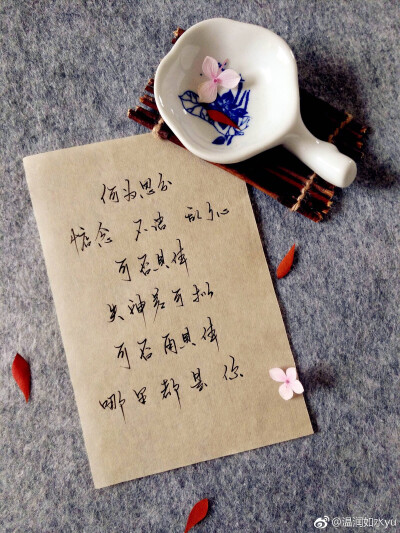 何为思念
惦念 不语 乱于心
可否具体
失神若可
可否再具体
哪里都是你
@温润如水yu